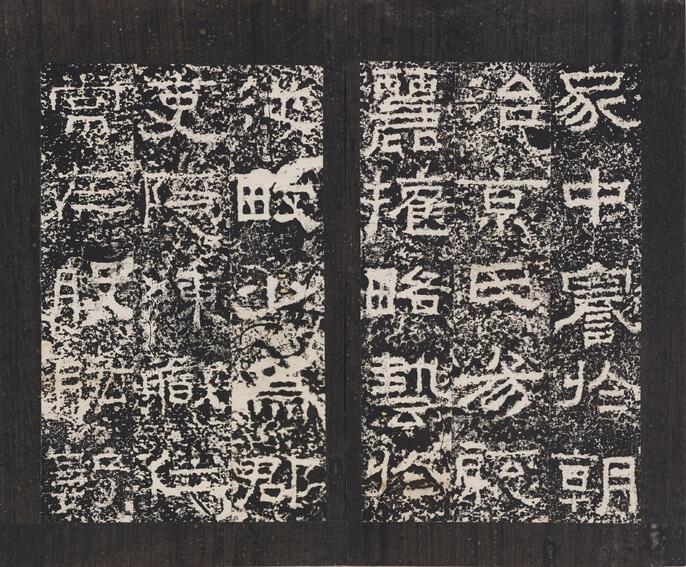 家中謇於朝
治京氏易聰
麗權略藝於
從畋少為郡
吏隱練職位
常在股肱數